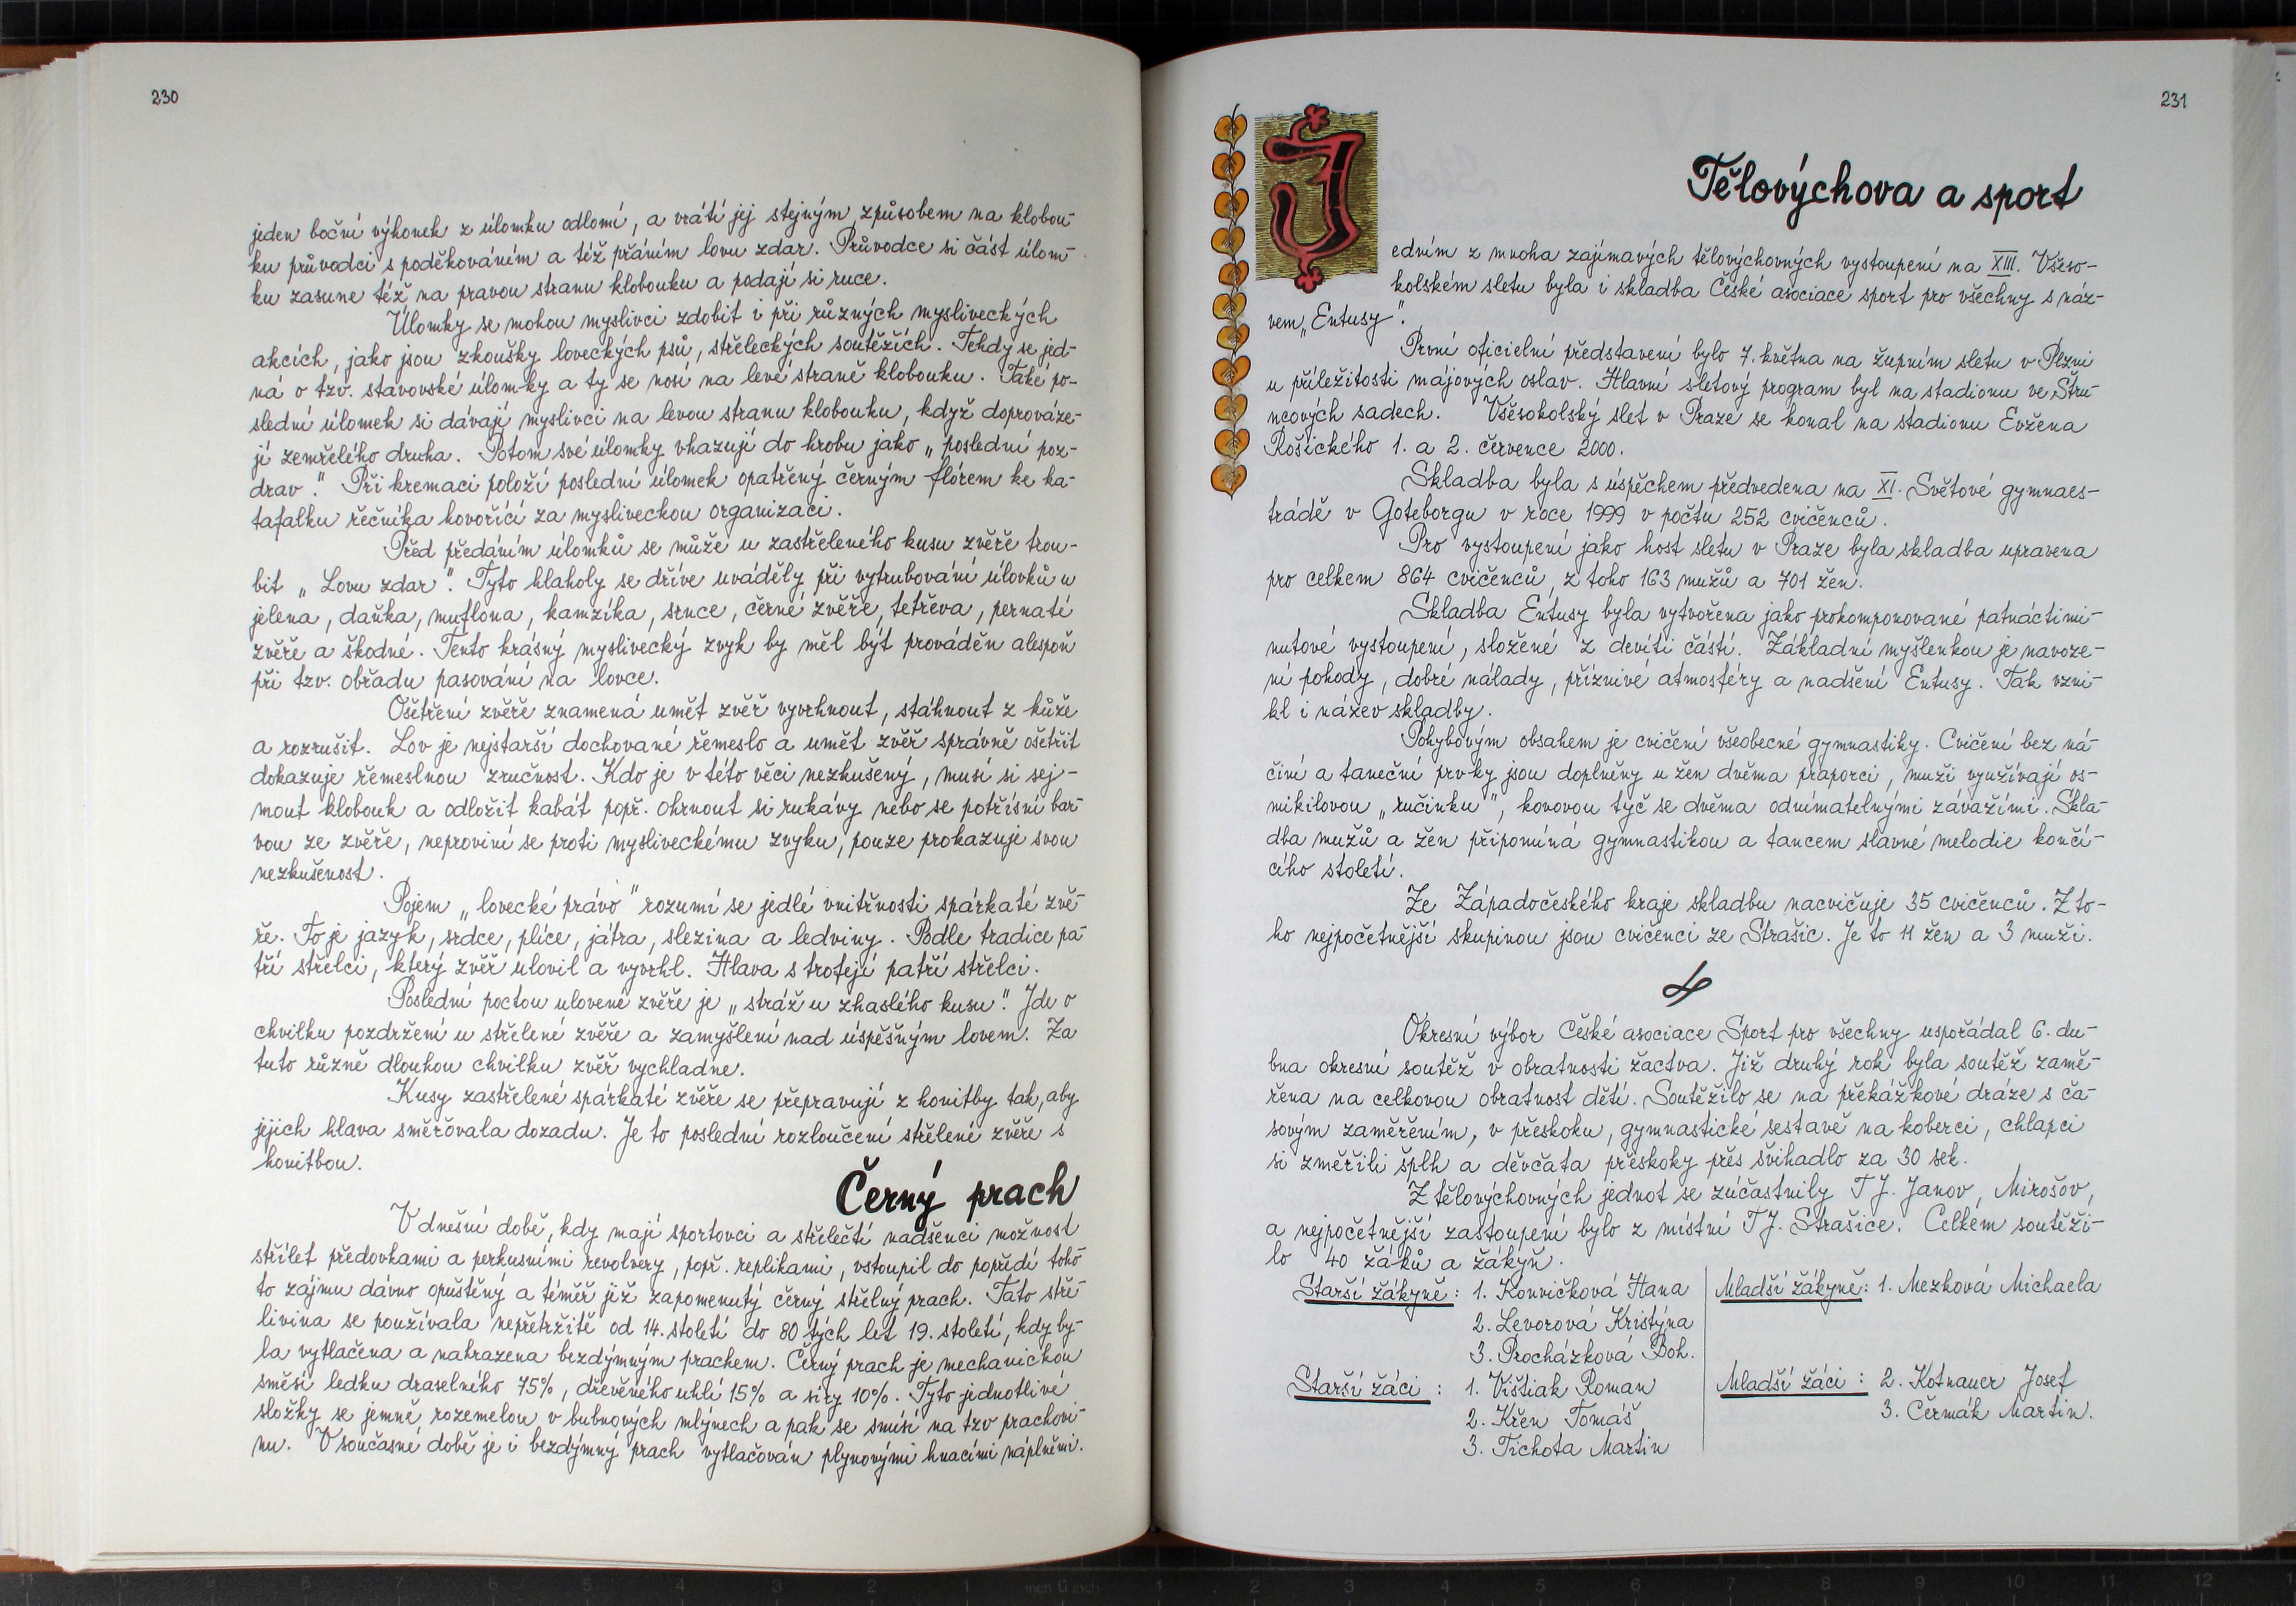 230
jeden boční výhonek z úlomku odlomí, a vrátí jej stejným způsobem na klobou-
ku průvodci s poděkováním a též přáním lovu zdar. Průvodce si část úlom-
ku zasune též na pravou stranu klobouku a podají si ruce.
Úlomky se mohou myslivci zdobit i při různých mysliveckých
akcích, jako jsou zkoušky loveckých psů, střeleckých soutěžích. Tehdy se jed-
ná o tzv. stavovské úlomky a ty se nosí na levé straně klobouku. Také po-
slední úlomek si dávají myslivci na levou stranu klobouku, když doprováze-
jí zemřelého druha. Potom své úlomky vhazují do hrobu jako „poslední poz-
drav". Při kremaci položí poslední úlomek opatřený černým flórem ke ka-
tafalku řečníka hovořící za mysliveckou organizaci.
Před předáním úlomků se může u zastřeleného kusu zvěře trou-
bit „Lovu zdar". Tyto hlaholy se dříve uváděly při vytrubování úlovků u
jelena, daňka, muflona, kamzíka, srnce, černé zvěře, tetřeva, pernaté
zvěře a škodné. Tento krásný myslivecký zvyk by měl být prováděn alespoň
při tzv. obřadu pasování na lovce.
Ošetření zvěře znamená umět zvěř vyvrhnout, stáhnout z kůže
a rozrušit. Lov je nejstarší dochované řemeslo a umět zvěř správně ošetřit
dokazuje řemeslnou zručnost. Kdo je v této věci nezkušený, musí si sej-
mout klobouk a odložit kabát popř. ohrnout si rukávy nebo se potřísní bar-
vou ze zvěře, neproviní se proti mysliveckému zvyku, pouze prokazuje svou
nezkušenost.
Pojem „lovecké právo" rozumí se jedlé vnitřnosti spárkaté zvě-
ře. To je jazyk, srdce, plíce, játra, slezina a ledviny. Podle tradice pa-
tří střelci, který zvěř ulovil a vyvrhl. Hlava s trofejí patří střelci.
Poslední poctou ulovené zvěře je „stráž u zhaslého kusu". Jde o
chvilku pozdržení u střelené zvěře a zamyšlení nad úspěšným lovem. Za
tuto různě dlouhou chvilku zvěř vychladne.
Kusy zastřelené spárkaté zvěře se přepravují z honitby tak, aby
jejich hlava směřovala dozadu. Je to poslední rozloučení střelené zvěře s
honitbou.
Černý prach
V dnešní době, kdy mají sportovci a střelečtí nadšenci možnost
střílet předovkami a perkusními revolvery, popř. replikami, vstoupil do popředí toho-
to zájmu dávno opuštěný a téměř již zapomenutý černý střelný prach. Tato stře-
livina se používala nepřetržitě od 14. století do 80 tých let 19. století, kdy by-
la vytlačena a nahrazena bezdýmným prachem. Černý prach je mechanickou
směsí ledku draselného 75%, dřevěného uhlí 15% a síry 10%. Tyto jednotlivé
složky se jemně rozemelou v bubnových mlýnech a pak se smísí na tzv prachovi-
nu. V současné době je i bezdýmný prach vytlačován plynovými hnacími náplněmi.
231
Tělovýchova a sport
Jedním z mnoha zajímavých tělovýchovných vystoupení na XIII. Všeso-
kolském sletu byla i skladba České asociace sport pro všechny s náz-
vem „Entusy".
První oficielní představení bylo 7. května na župním sletu v Plzni
u příležitosti májových oslav. Hlavní sletový program byl na stadionu ve Štru-
ncových sadech. Všesokolský slet v Praze se konal na stadionu Evžena
Rošického 1. a 2. července 2000.
Skladba byla s úspěchem předvedena na XI. Světové gymnaes-
trádě v Goteborgu v roce 1999 v počtu 252 cvičenců.
Pro vystoupení jako host sletu v Praze byla skladba upravena
pro celkem 864 cvičenců, z toho 163 mužů a 701 žen.
Skladba Entusy byla vytvořena jako prokomponované patnáctimi-
nutové vystoupení, složené z devíti částí. Základní myšlenkou je navoze-
ní pohody, dobré nálady, příznivé atmosféry a nadšení Entusy. Tak vzni-
kl i název skladby.
Pohybovým obsahem je cvičení všeobecné gymnastiky. Cvičení bez ná-
činí a taneční prvky jsou doplněny u žen dvěma praporci, muži využívají os-
mikilovou „ručinku", kovovou tyč se dvěma odnímatelnými závažími. Skla-
dba mužů a žen připomíná gymnastikou a tancem slavné melodie končí-
cího století.
Ze Západočeského kraje skladbu nacvičuje 35 cvičenců. Z to-
ho nejpočetnější skupinou jsou cvičenci ze Strašic. Je to 11 žen a 3 muži.
Okresní výbor České asociace Sport pro všechny uspořádal 6. du-
bna okresní soutěž v obratnosti žactva. Již druhý rok byla soutěž zamě-
řena na celkovou obratnost dětí. Soutěžilo se na překážkové dráze s ča-
sovým zaměřením, v přeskoku, gymnastické sestavě na koberci, chlapci
si změřili šplh a děvčata přeskoky přes švihadlo za 30 sek.
Z tělovýchovných jednot se zúčastnily T.J. Janov, Mirošov,
a nejpočetnější zastoupení bylo z místní T.J. Strašice. Celkem soutěži-
lo 40 žáků a žákyň.
Starší žákyně: 1. Konvičková Hana
2. Levorová Kristýna
3. Procházková Boh.
Starší žáci : 1. Vištiak Roman
2. Křen Tomáš
3. Tichota Martin
Mladší žákyně: 1. Mezková Michaela
Mladší žáci : 2. Kotnauer Josef
3. Čermák Martin.